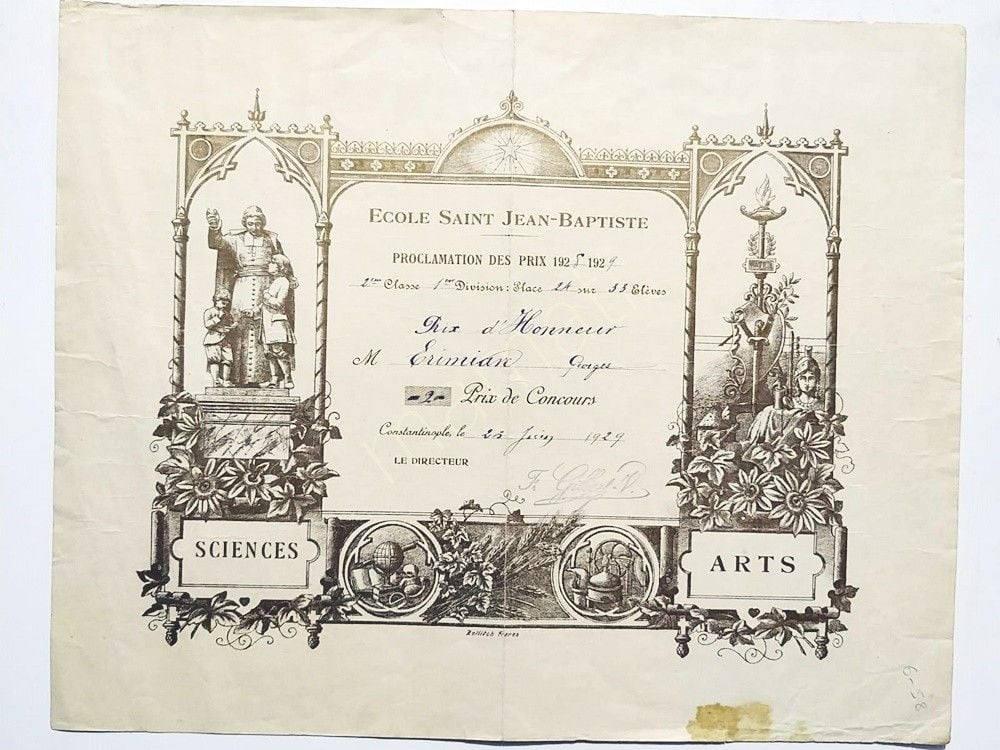 ECOLE SAINT JEAN-BAPTISTE
PROCLAMATION DES PRIX 1928 1929
2ème Classe 1ère Division: Place 24 sur 33 Elèves
Prix d'Honneur
M Erimian Georges
-2- Prix de Concours
Constantinople, le 25 Juin 1929
LE DIRECTEUR
SCIENCES
ARTS
Zellitch Freres
6-58